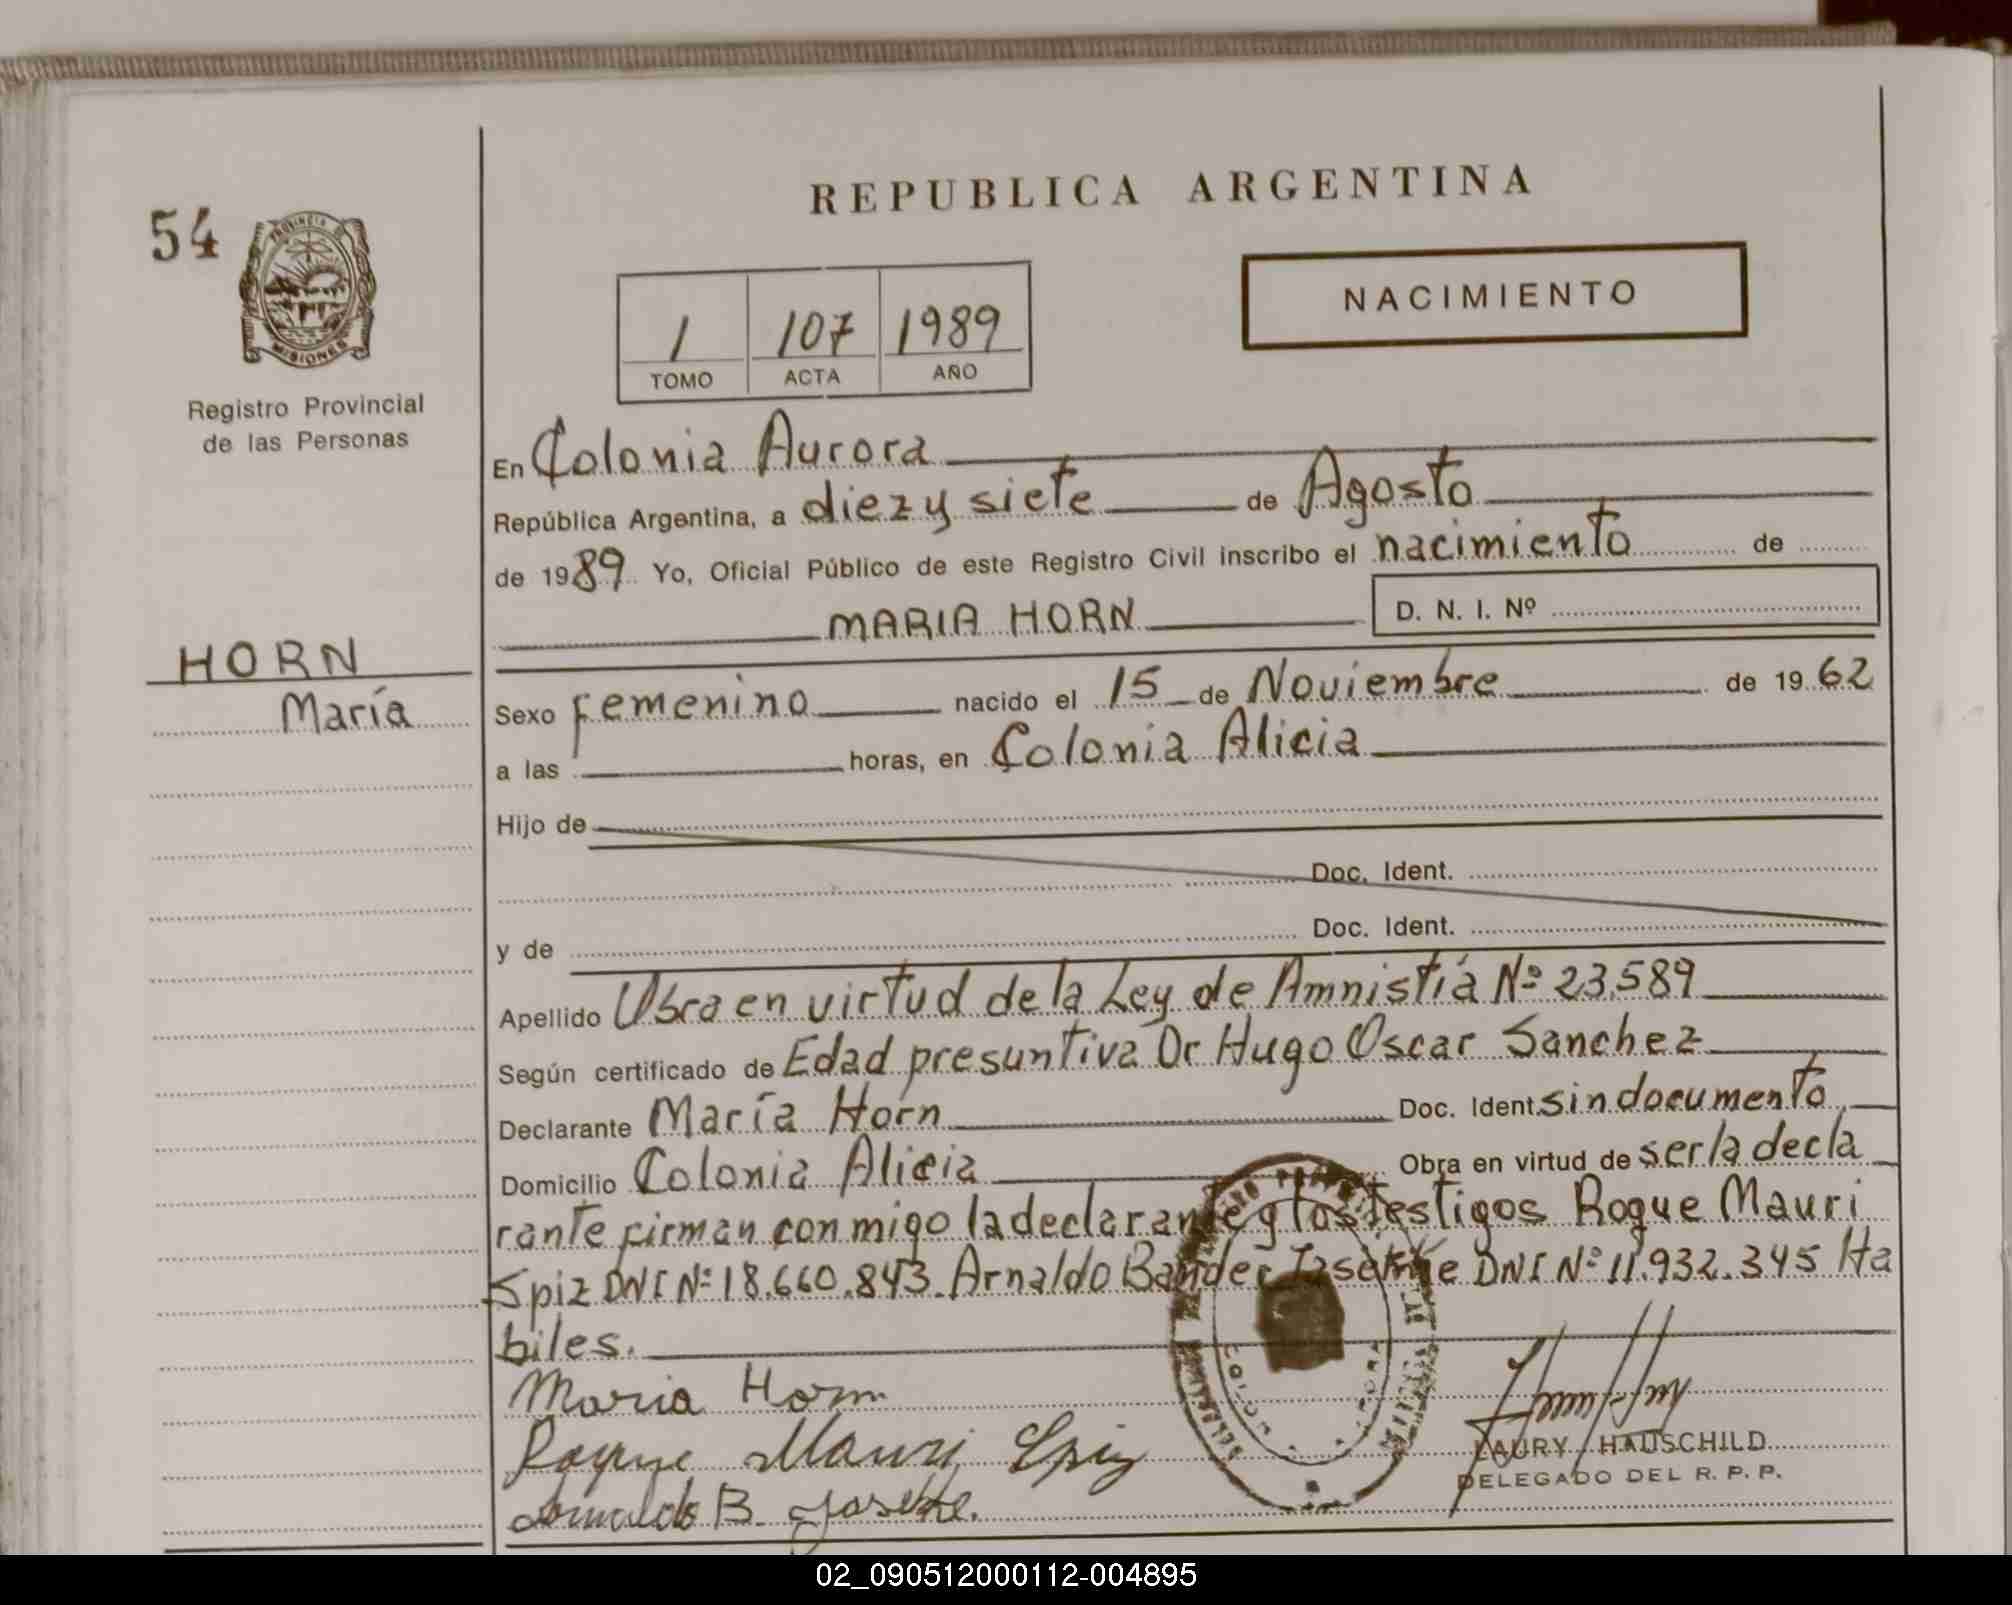 REPUBLICA ARGENTINA
54
PROVINCIA DE
MISIONES
Registro Provincial
de las Personas
NACIMIENTO
1 107 1989
TOMO ACTA AÑO
En Colonia Aurora
República Argentina, a diez y siete de Agosto
de 1989 Yo, Oficial Público de este Registro Civil inscribo el nacimiento de
MARIA HORN D. N. I. Nº
HORN
María
Sexo Femenino nacido el 15 de Noviembre de 1962
a las horas, en Colonia Alicia
Hijo de
Doc. Ident.
y de Doc. Ident.
Apellido Obra en virtud de la Ley de Amnistía Nº 23.589
Según certificado de Edad presuntiva Dr Hugo Oscar Sanchez
Declarante María Horn Doc. Ident. sin documento
Domicilio Colonia Alicia Obra en virtud de ser la decla
rante firman conmigo la declarante y los testigos Roque Mauri
Spiz DNI Nº 18.660.843. Arnaldo Bander DNI Nº 11.932.345 Ha
biles.
Maria Horn
Roque Mauri Spiz
Arnaldo B.
LAURY HAUSCHILD
DELEGADO DEL R. P. P.
02_090512000112-004895